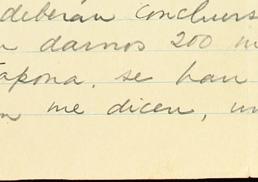 deberán concluirs
darnos 200 m
apona, se han
me dicen, un